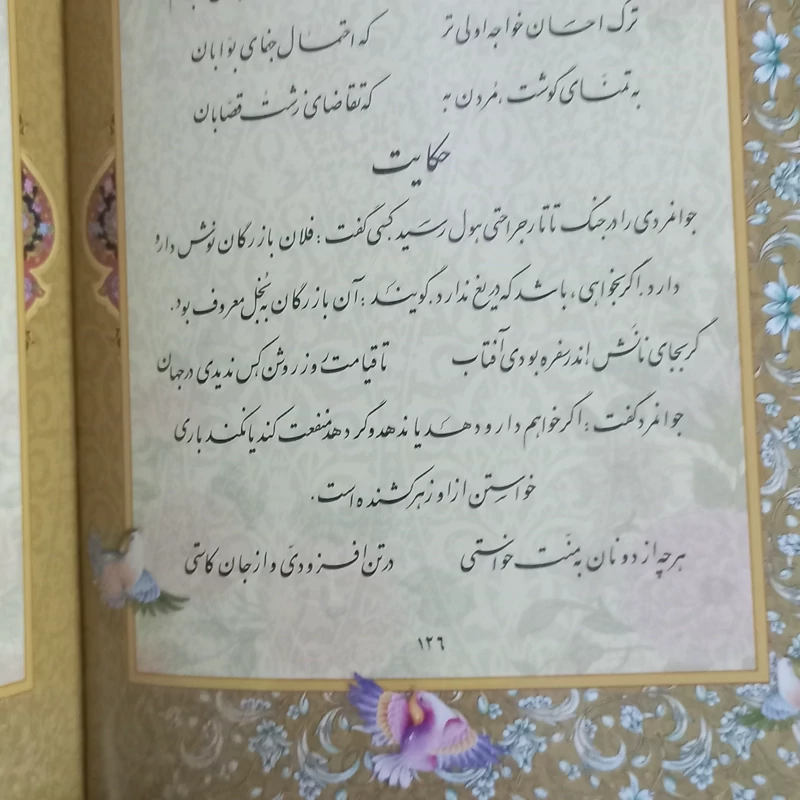 ترک احسان خواجه اولی‌تر که احتمال جفای بوّابان
به تمنّای گوشت، مُردن به که تقاضای زشت قصّابان
حکایت
جوانمردی را در جنگ تاتار جراحتی هول رسید کسی گفت: فلان بازرگان نوش دارو
دارد. اگر بخواهی، باشد که دریغ ندارد. گویند: آن بازرگان به بُخل معروف بود.
گر بجای نانَش اندر سفره بودی آفتاب تا قیامت روز روشن کس ندیدی در جهان
جوانمرد گفت: اگر خواهم دارو دهد یا ندهد و گر دهد منفعت کند یا نکند باری
خواستن از او زهر کشنده است.
هر چه از دونان به منّت خواستی در تن افزودی و از جان کاستی
۱۲۶